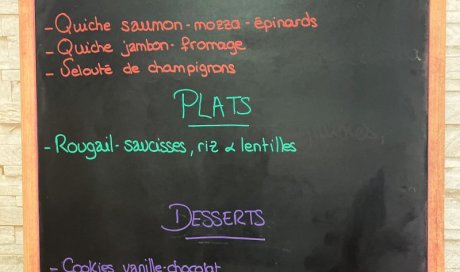 - Quiche saumon - mozza - épinards
- Quiche jambon - fromage
- Velouté de champignons
PLATS
- Rougail - saucisses, riz & lentilles
DESSERTS
- Cookies vanille-chocolat